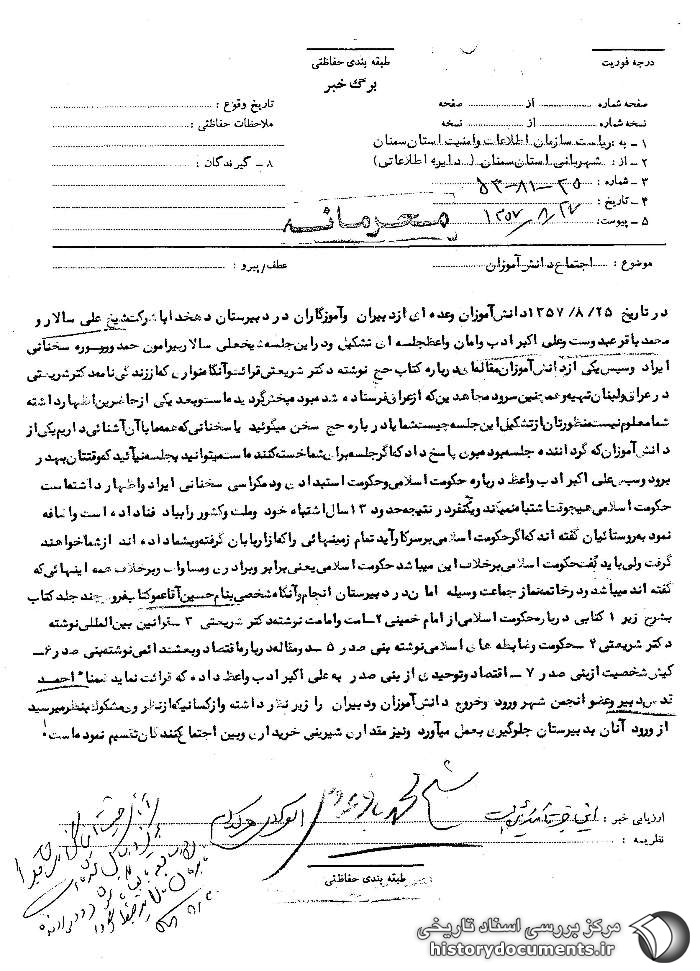 درجه فوریت
طبقه بندی حفاظتی
برگ خبر
صفحه شماره : از صفحه
نسخه شماره : از نسخه
۱ - به :ریاست سازمان اطلاعات وامنیت استان سمنان
۲ - از : شهربانی استان سمنان ( دایره اطلاعاتی)
۳ - شماره : ۲۵-۸۱-۵۳
۴ - تاریخ :
۵ - پیوست:
تاریخ وقوع :
ملاحظات حفاظتی :
۸ - گیرندگان :
محرمانه
موضوع : اجتماع دانش آموزان
عطف/پیرو :
در تاریخ ۲۵ /۸ /۱۳۵۷ دانش آموزان وعده ای از دبیران وآموزگاران در دبیرستان دهخدا با شرکت شیخ علی سالار و
محمد باقر عبدوست وعلی اکبر ادب وامان واعظ جلسه ای تشکیل ودر این جلسه شیخ علی سالار پیرامون حمد وسوره سخنانی
ایراد وسپس یکی از دانش آموزان مقاله ای درباره کتاب حج نوشته دکتر شریعتی قرائت وآنگاه نواری که از زندگی نامه دکتر شریعتی
در عراق ولبنان تهیه و همچنین سرود مجاهدین که از عراق فرستاده شده بود پخش گردیده است وبعد یکی از حاضرین اظهار داشته
شما معلوم نیست منظورتان از تشکیل این جلسه چیست شما یا درباره حج سخن میگوئید یا سخنانی که همه ما با آن آشنائی داریم یکی از
دانش آموزان که گرداننده جلسه بود میون پاسخ داد که اگر جلسه برای شما خسته کننده است میتوانید به جلسه نیآئید که وقتتان بهدر
برود وسپس علی اکبر ادب واعظ درباره حکومت اسلامی وحکومت استبدادی ودمکراسی سخنانی ایراد واظهار داشته است
حکومت اسلامی هیچوقت اشتباه نمیکند ویکنفر در نتیجه حدود ۱۳ سال اشتباه خود وملت وکشور را بباد فنا داده است واضافه
نمود به روستائیان گفته اند که اگر حکومت اسلامی بر سر کار آید تمام زمینهائی را که از اربابان گرفته وبشما داده اند از شما خواهند
گرفت ولی باید گفت حکومت اسلامی برخلاف این میباشد حکومت اسلامی یعنی برابر وبرادری ومساوات وبرخلاف همه اینهائی که
گفته اند میباشد ودر خاتمه نماز جماعت وسیله امان در دبیرستان انجام وآنگاه شخصی بنام حسین آقا عمو کتابفروش چند جلد کتاب
بشرح زیر ۱ کتابی درباره حکومت اسلامی از امام خمینی ۲- امت وامامت نوشته دکتر شریعتی ۳ - قوانین بین المللی نوشته
دکتر شریعتی ۴ - حکومت وضابطه های اسلامی نوشته بنی صدر ۵ - دو مقاله درباره اقتصاد نوشته بنی صدر ۶ -
کیش شخصیت از بنی صدر ۷ - اقتصاد وتوحیدی از بنی صدر به علی اکبر ادب واعظ داده که قرائت نماید ضمنا احمد
دبیر وعضو انجمن شهر ورود وخروج دانش آموزان ودبیران را زیر نظر داشته واز کسانیکه از نظر وی مشکوک بنظر میرسید
از ورود آنان به دبیرستان جلوگیری بعمل میآورد ونیز مقداری شیرینی خریداری وبین اجتماع کنندگان تقسیم نموده است.
ارزیابی خبر :
نظریه :
طبقه بندی حفاظتی
مرکز بررسی اسناد تاریخی
historydocuments.ir